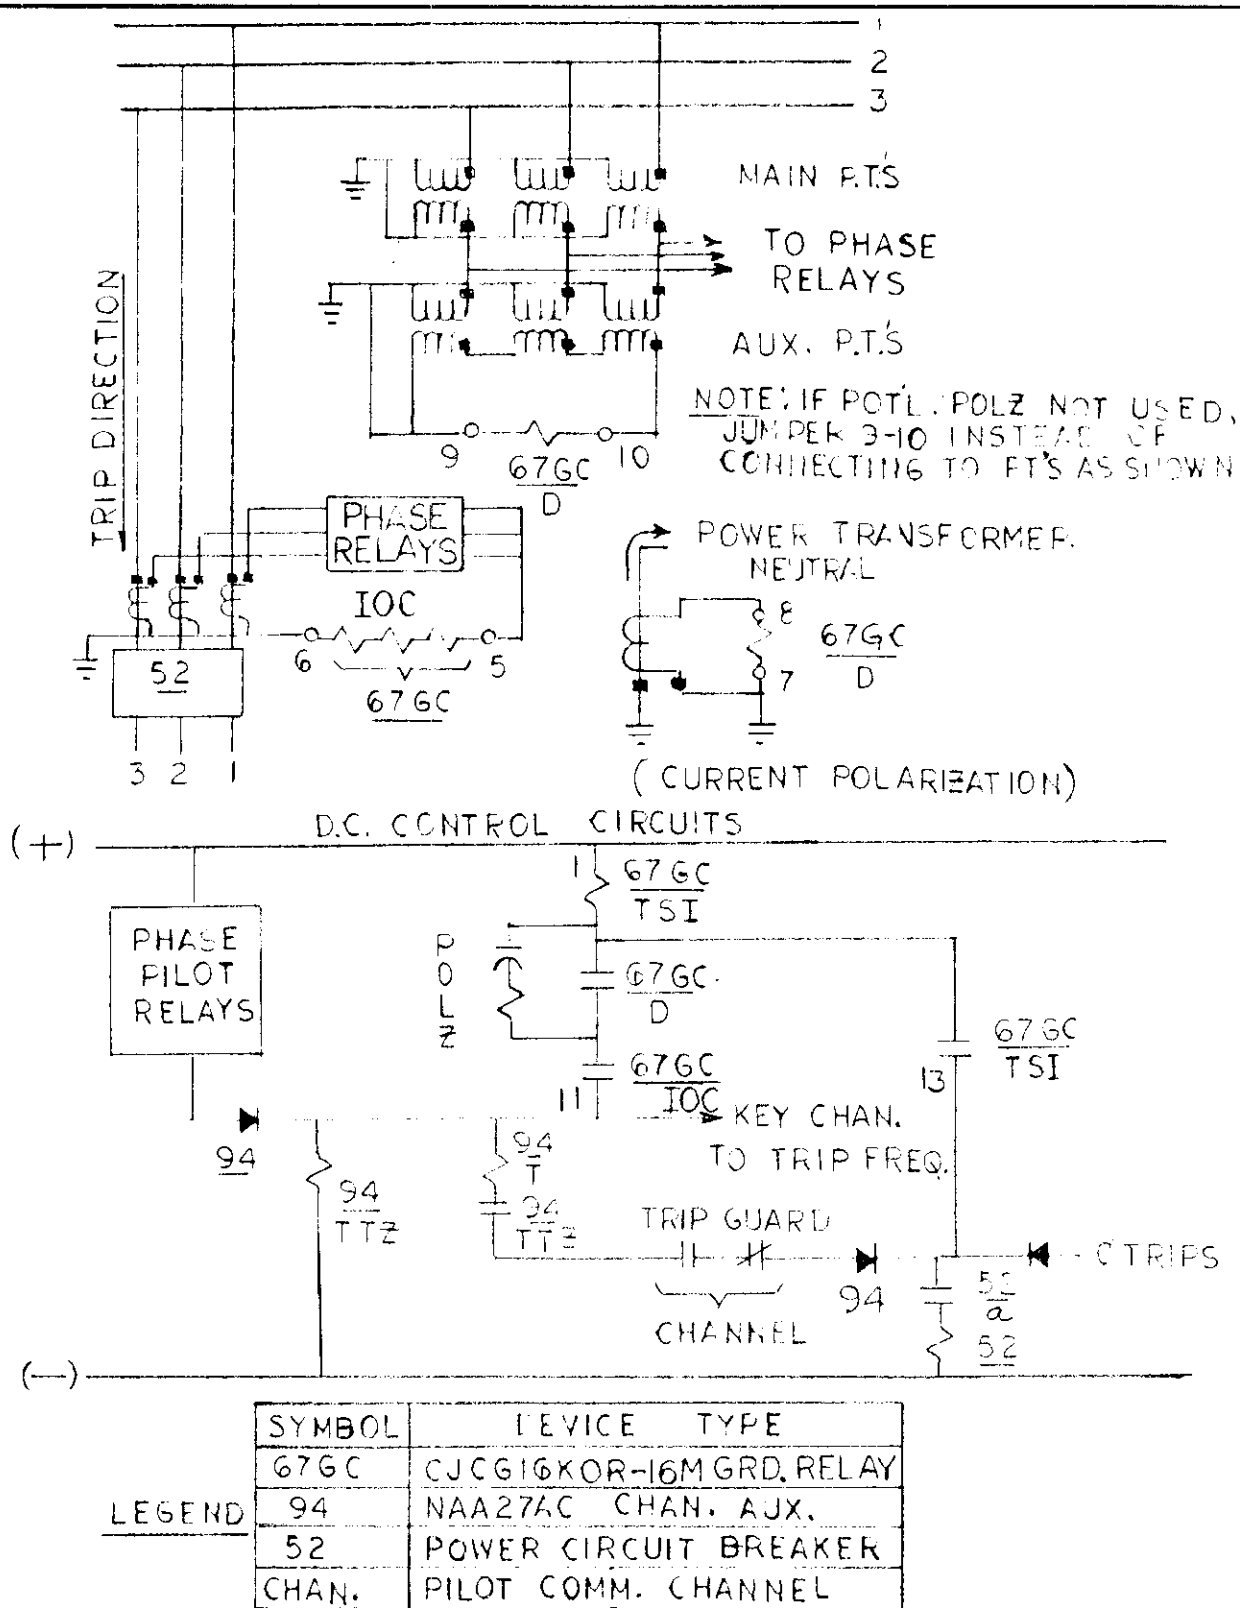 1
2
3
MAIN P.T'S
TO PHASE
RELAYS
TRIP DIRECTION
AUX. P.T.'S
NOTE: IF POT'L. POLZ NOT USED,
JUMPER 9-10 INSTEAD OF
CONNECTING TO PT'S AS SHOWN
9
67GC
D
10
PHASE
RELAYS
IOC
6
5
67GC
52
3 2 1
POWER TRANSFORMER
NEUTRAL
8
67GC
D
7
(CURRENT POLARIZATION)
D.C. CONTROL CIRCUITS
(+)
1
67GC
TSI
PHASE
PILOT
RELAYS
POLZ
67GC
D
67GC
IOC
11
67GC
TSI
13
KEY CHAN.
TO TRIP FREQ.
94
94
TTZ
94
T
94
TTZ
TRIP GUARD
CHANNEL
94
TRIPS
52
a
52
(—)
LEGEND
SYMBOL DEVICE TYPE
67GC CJCG16K0R-16M GRD. RELAY
94 NAA27AC CHAN. AUX.
52 POWER CIRCUIT BREAKER
CHAN. PILOT COMM. CHANNEL